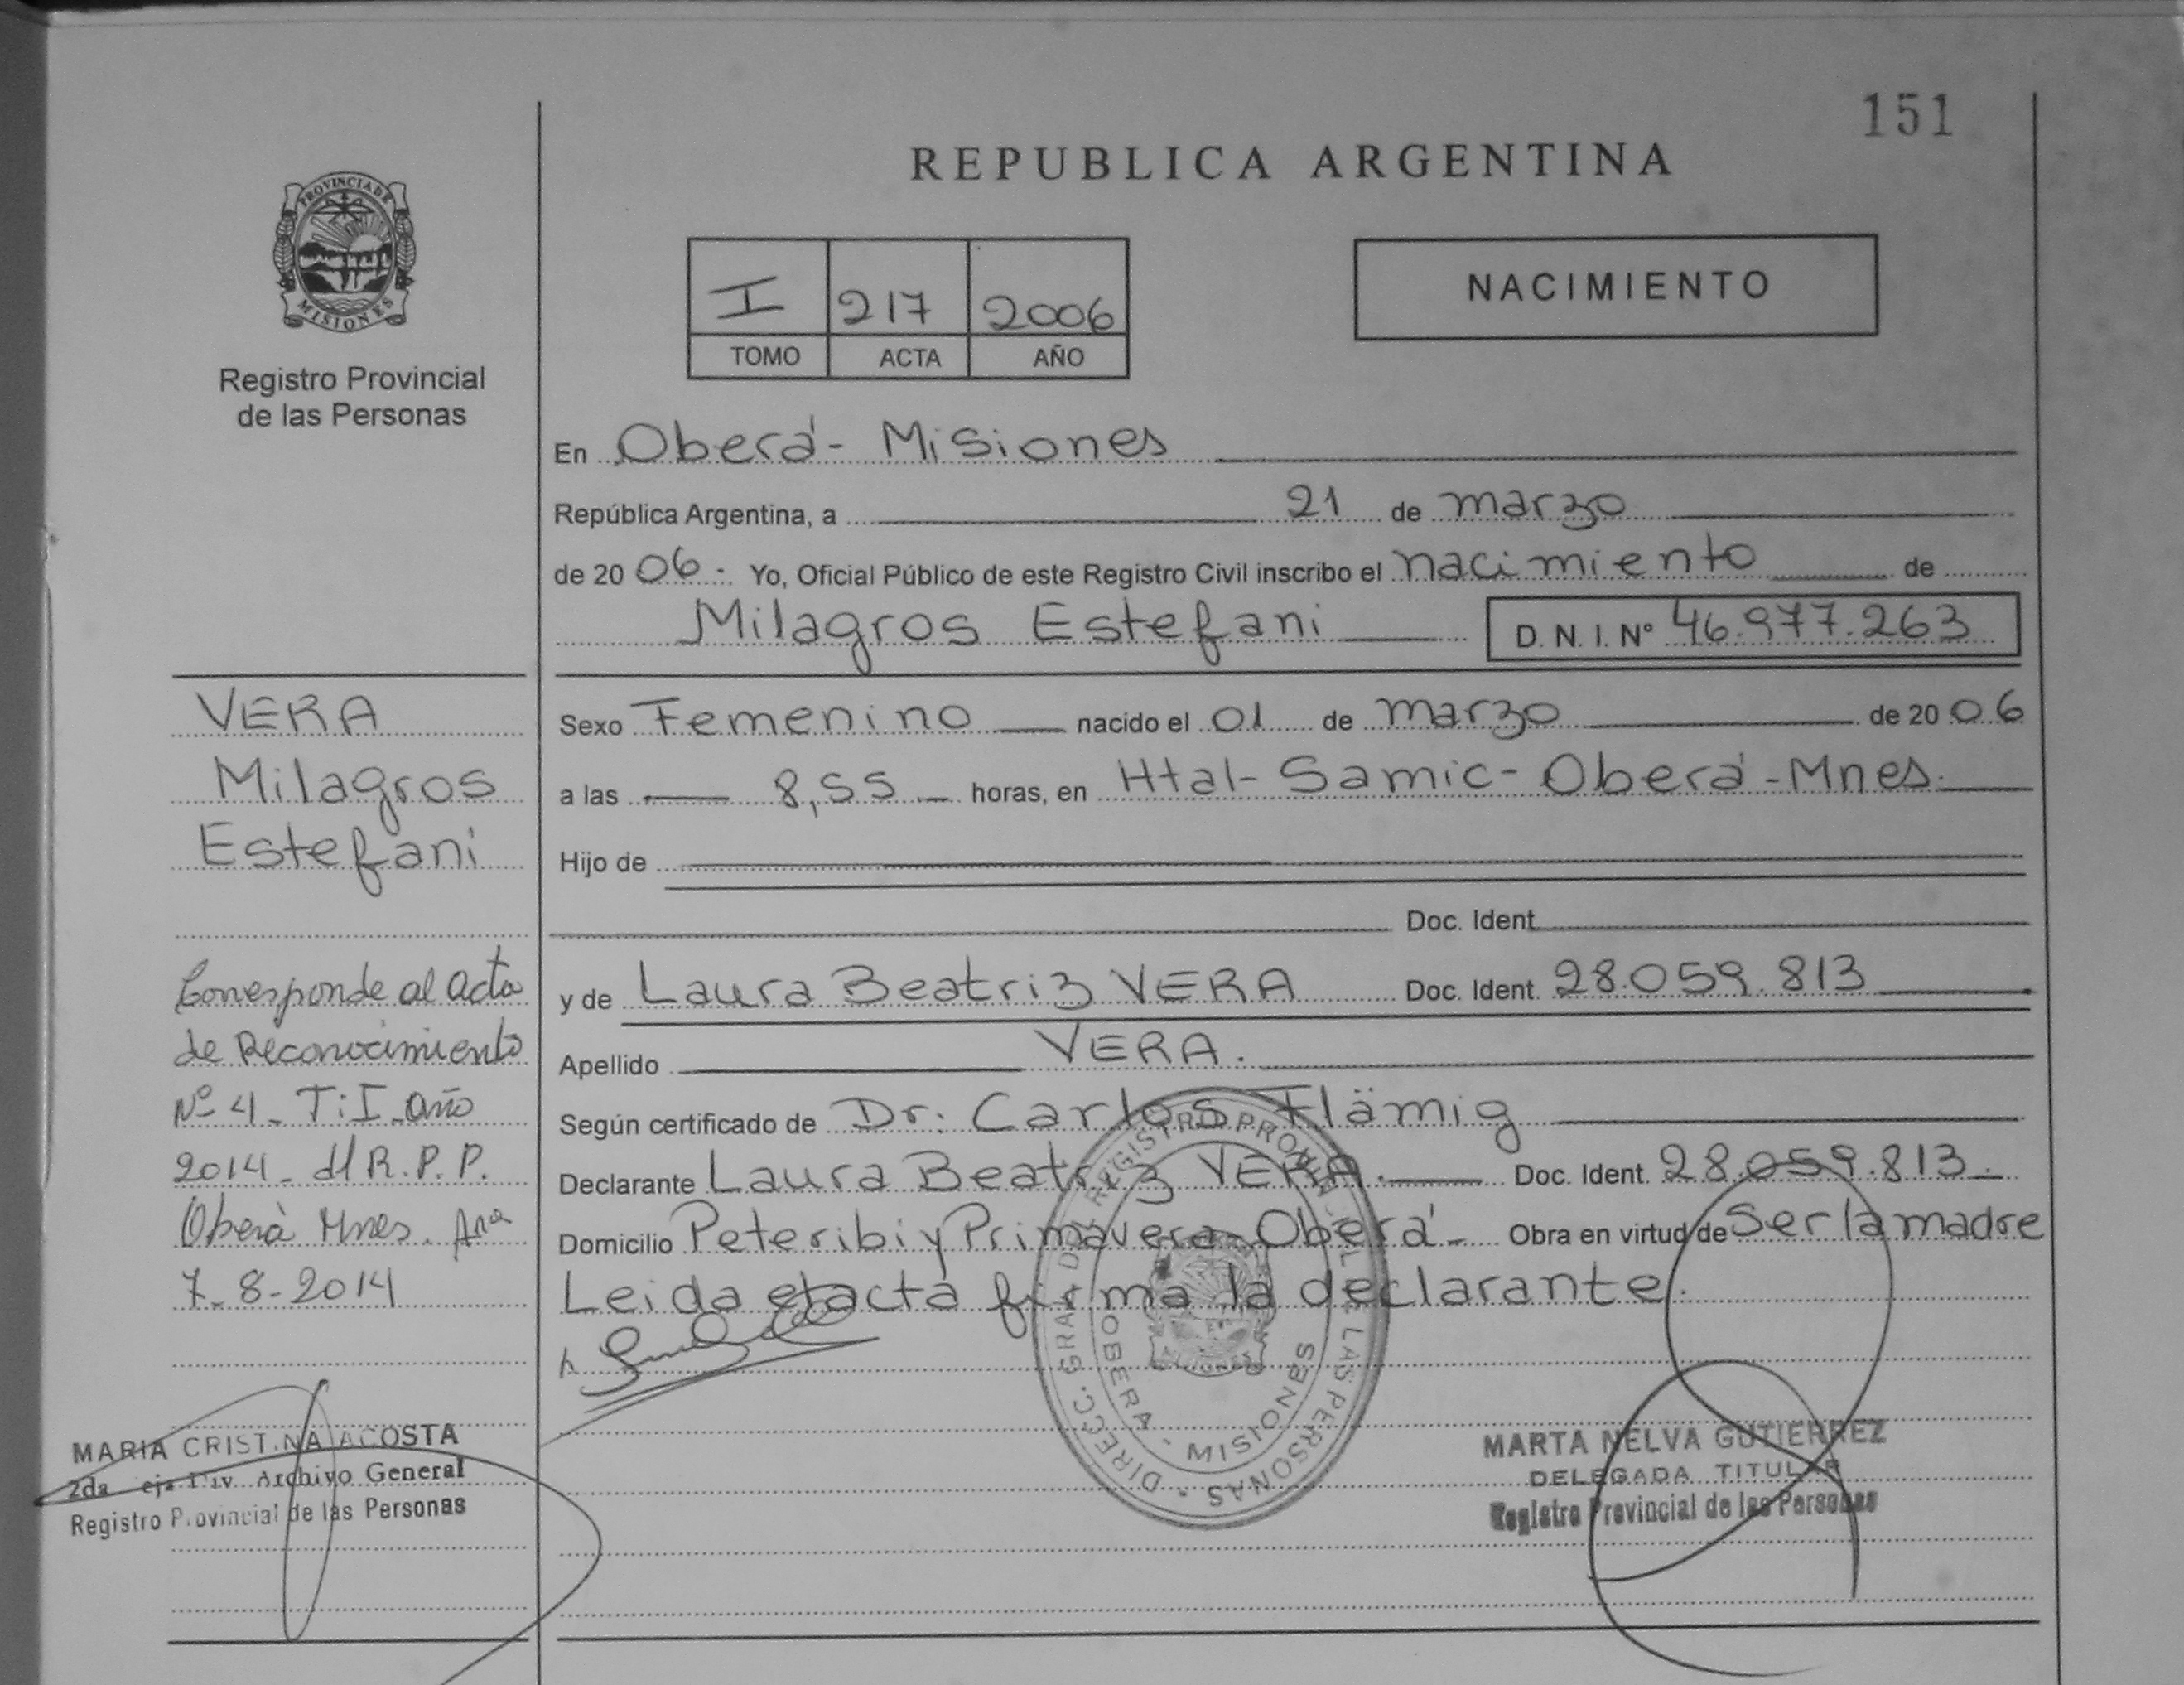 151
REPUBLICA ARGENTINA
PROVINCIA DE
MISIONES
Registro Provincial
de las Personas
I 217 2006
TOMO ACTA AÑO
NACIMIENTO
En Oberá - Misiones
República Argentina, a 21 de marzo
de 20 06 - Yo, Oficial Público de este Registro Civil inscribo el nacimiento de
Milagros Estefani D. N. I. Nº 46.977.263
Sexo Femenino nacido el 01 de marzo de 20 06
a las 8,55 horas, en Htal - Samic - Oberá - Mnes.
Hijo de
Doc. Ident.
y de Laura Beatriz VERA Doc. Ident. 28.059.813
Apellido VERA.
Según certificado de Dr: Carlos Flämig
Declarante Laura Beatriz VERA. Doc. Ident. 28.059.813.
Domicilio Peteribi y Primavera - Oberá - Obra en virtud de Ser la madre
Leida el acta firma la declarante.
VERA
Milagros
Estefani
Corresponde al Acta
de Reconocimiento
Nº 4 - T: I - año
2014 - R.P.P.
Oberà Mnes.
7-8-2014
MARIA CRISTINA ACOSTA
2da Div. Archivo General
Registro Provincial de las Personas
DIRECC. GRAL. DEL REGISTRO PROVINCIAL DE LAS PERSONAS -
OBERA - MISIONES
MARTA NELVA GUTIERREZ
DELEGADA TITULAR
Registro Provincial de las Personas